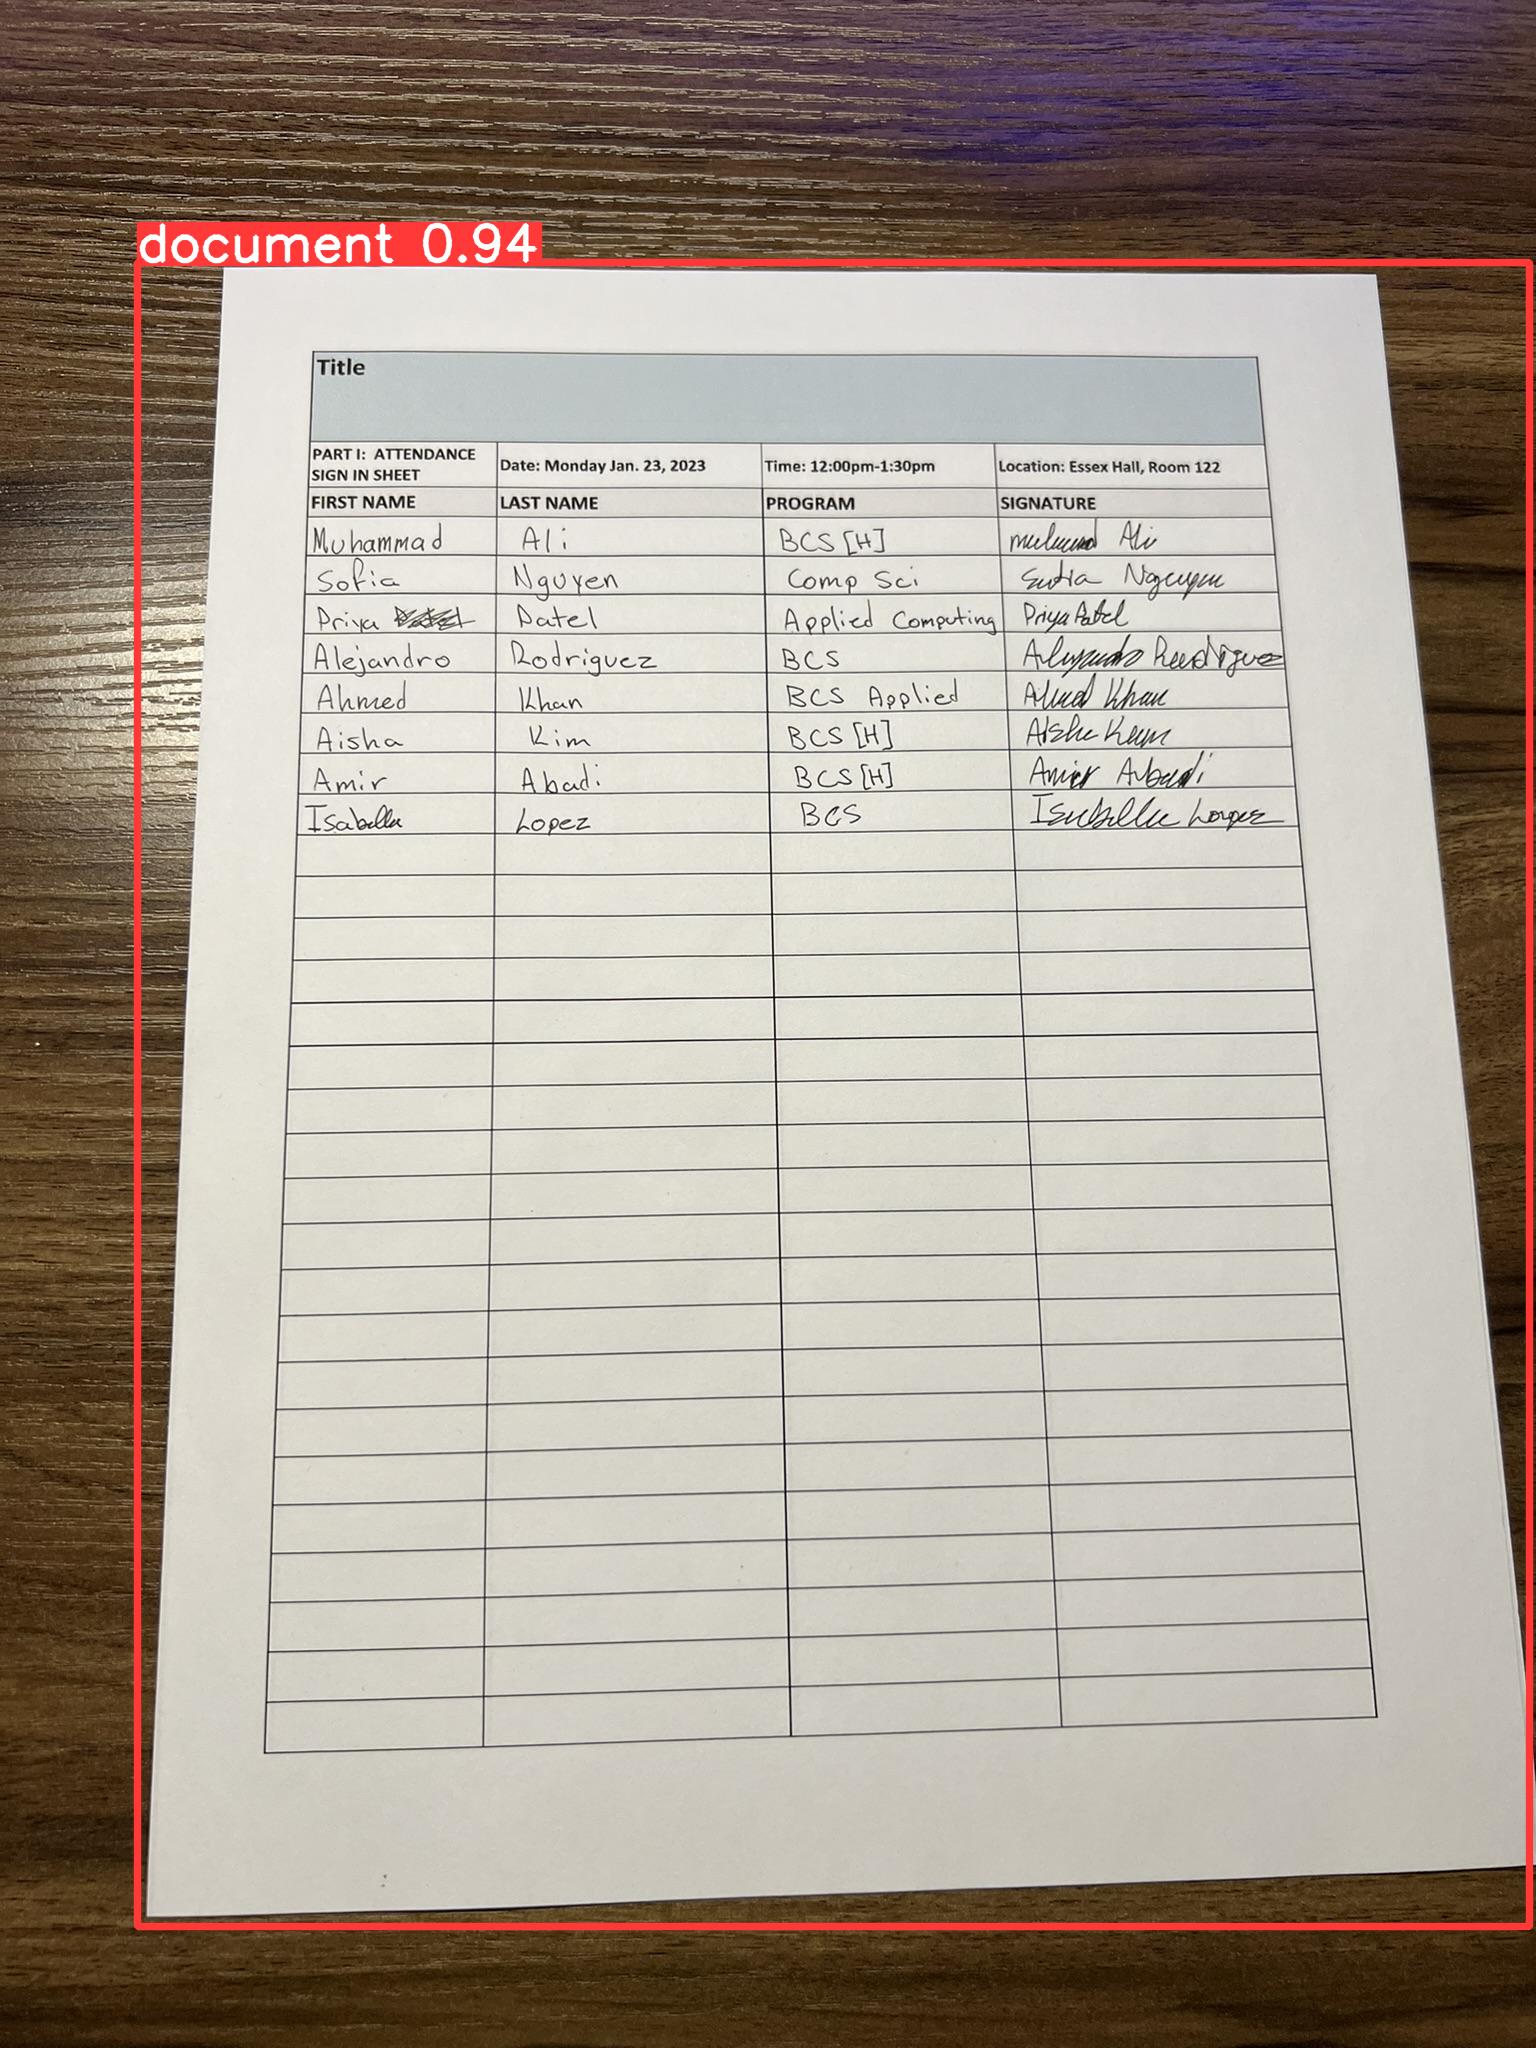 document 0.94
Title
PART I: ATTENDANCE
SIGN IN SHEET
Date: Monday Jan. 23, 2023
Time: 12:00pm-1:30pm
Location: Essex Hall, Room 122
FIRST NAME LAST NAME PROGRAM SIGNATURE
Muhammad Ali BCS [H] Ali
Sofia Nguyen Comp Sci Nguyen
Priya Patel Applied Computing Priya Patel
Alejandro Rodriguez BCS Alejandro Rodriguez
Ahmed Khan BCS Applied Ahmed Khan
Aisha Kim BCS [H] Aisha Kim
Amir Abadi BCS [H] Amir Abadi
Isabella Lopez BCS Isabella Lopez